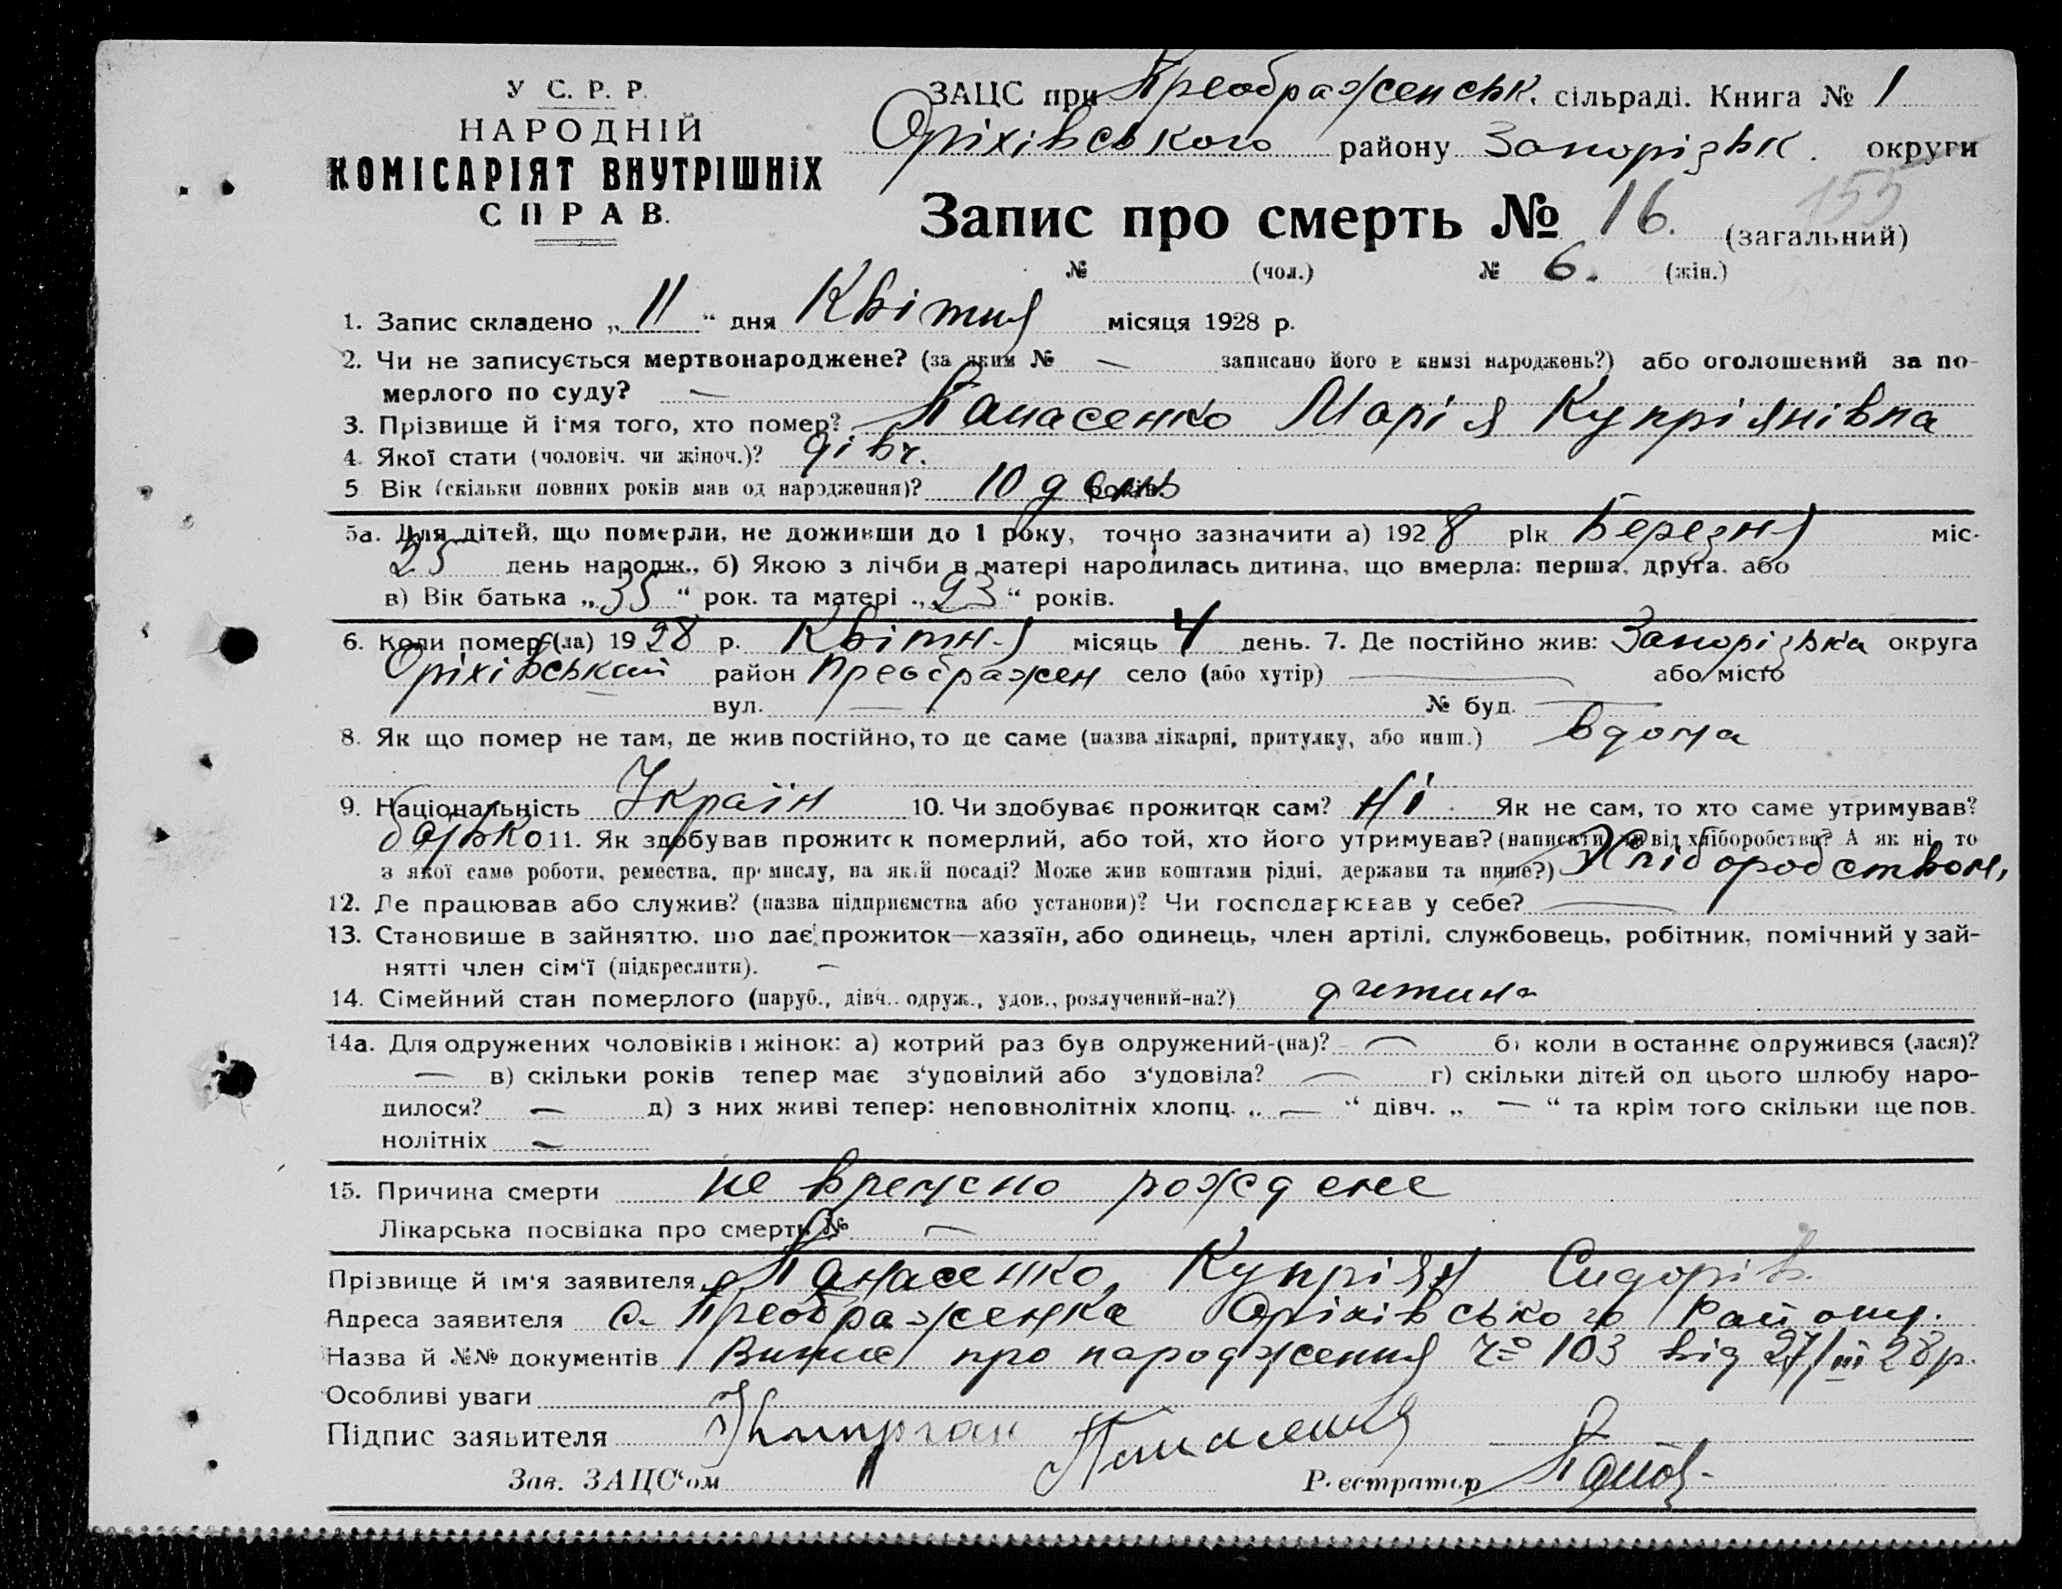 У С. Р. Р.
НАРОДНІЙ
КОМІСАРІЯТ ВНУТРІШНІХ
СПРАВ.
ЗАЦС при Преображенськ. сільраді. Книга № 1
Оріхівського району Запорізьк. округи
155
Запис про смерть № 16. (загальний)
№ (чол.) № 6. (жін.)
1. Запис складено „11“ дня Квітня місяця 1928 р.
2. Чи не записується мертвонароджене? (за яким № — записано його в книзі народжень?) або оголошений за по-
мерлого по суду? —
3. Прізвище й ім'я того, хто помер? Панасенко Марія Купріянівна
4. Якої стати (чоловіч. чи жіноч.)? дівч.
5 Вік (скільки повних років мав од народження)? 10 день років.
5а. Для дітей, що померли, не доживши до 1 року, точно зазначити а) 1928 рік Березня міс.
25 день народж., б) Якою з лічби в матері народилась дитина, що вмерла: перша, друга, або
в) Вік батька „35“ рок. та матері „23“ років.
6. Коли помер (ла) 1928 р. Квітня місяць 4 день. 7. Де постійно жив: Запорізька округа
Оріхівський район Преображен село (або хутір) — або місто
вул. — № буд. —
8. Як що помер не там, де жив постійно, то де саме (назва лікарні, притулку, або инш.) вдома
9. Національність Україн 10. Чи здобуває прожиток сам? Ні. Як не сам, то хто саме утримував?
батько 11. Як здобував прожиток померлий, або той, хто його утримував? (написати, чи від хліборобства? А як ні, то
з якої саме роботи, ремества, промислу, на якій посаді? Може жив коштами рідні, держави та инше?) Хліборобством,
12. Де працював або служив? (назва підприємства або установи)? Чи господарював у себе? —
13. Становище в зайняттю, що дає прожиток—хазяїн, або одинець, член артілі, службовець, робітник, помічний у зай-
нятті член сім'ї (підкреслити). —
14. Сімейний стан померлого (паруб., дівч., одруж., удов., розлучений-на?) дитина
14а. Для одружених чоловіків і жінок: а) котрий раз був одружений-(на)? — б) коли востаннє одружився (лася)?
— в) скільки років тепер має з'уповілий або з'удовіла? — г) скільки дітей од цього шлюбу наро-
дилося? — д) з них живі тепер: неповнолітніх хлопц. „ — “ дівч. „ — “ та крім того скільки ще пов.
нолітніх —
15. Причина смерти не времено рождене
Лікарська посвідка про смерть № —
Прізвище й ім'я заявителя Панасенко, Купріян Сидорів.
Адреса заявителя с. Преображенка Оріхівського Району.
Назва й №№ документів Випис про народження ч= 103 від 27/III 28р.
Особливі уваги
Підпис заявителя
Зав. ЗАЦС'ом Реєстратор